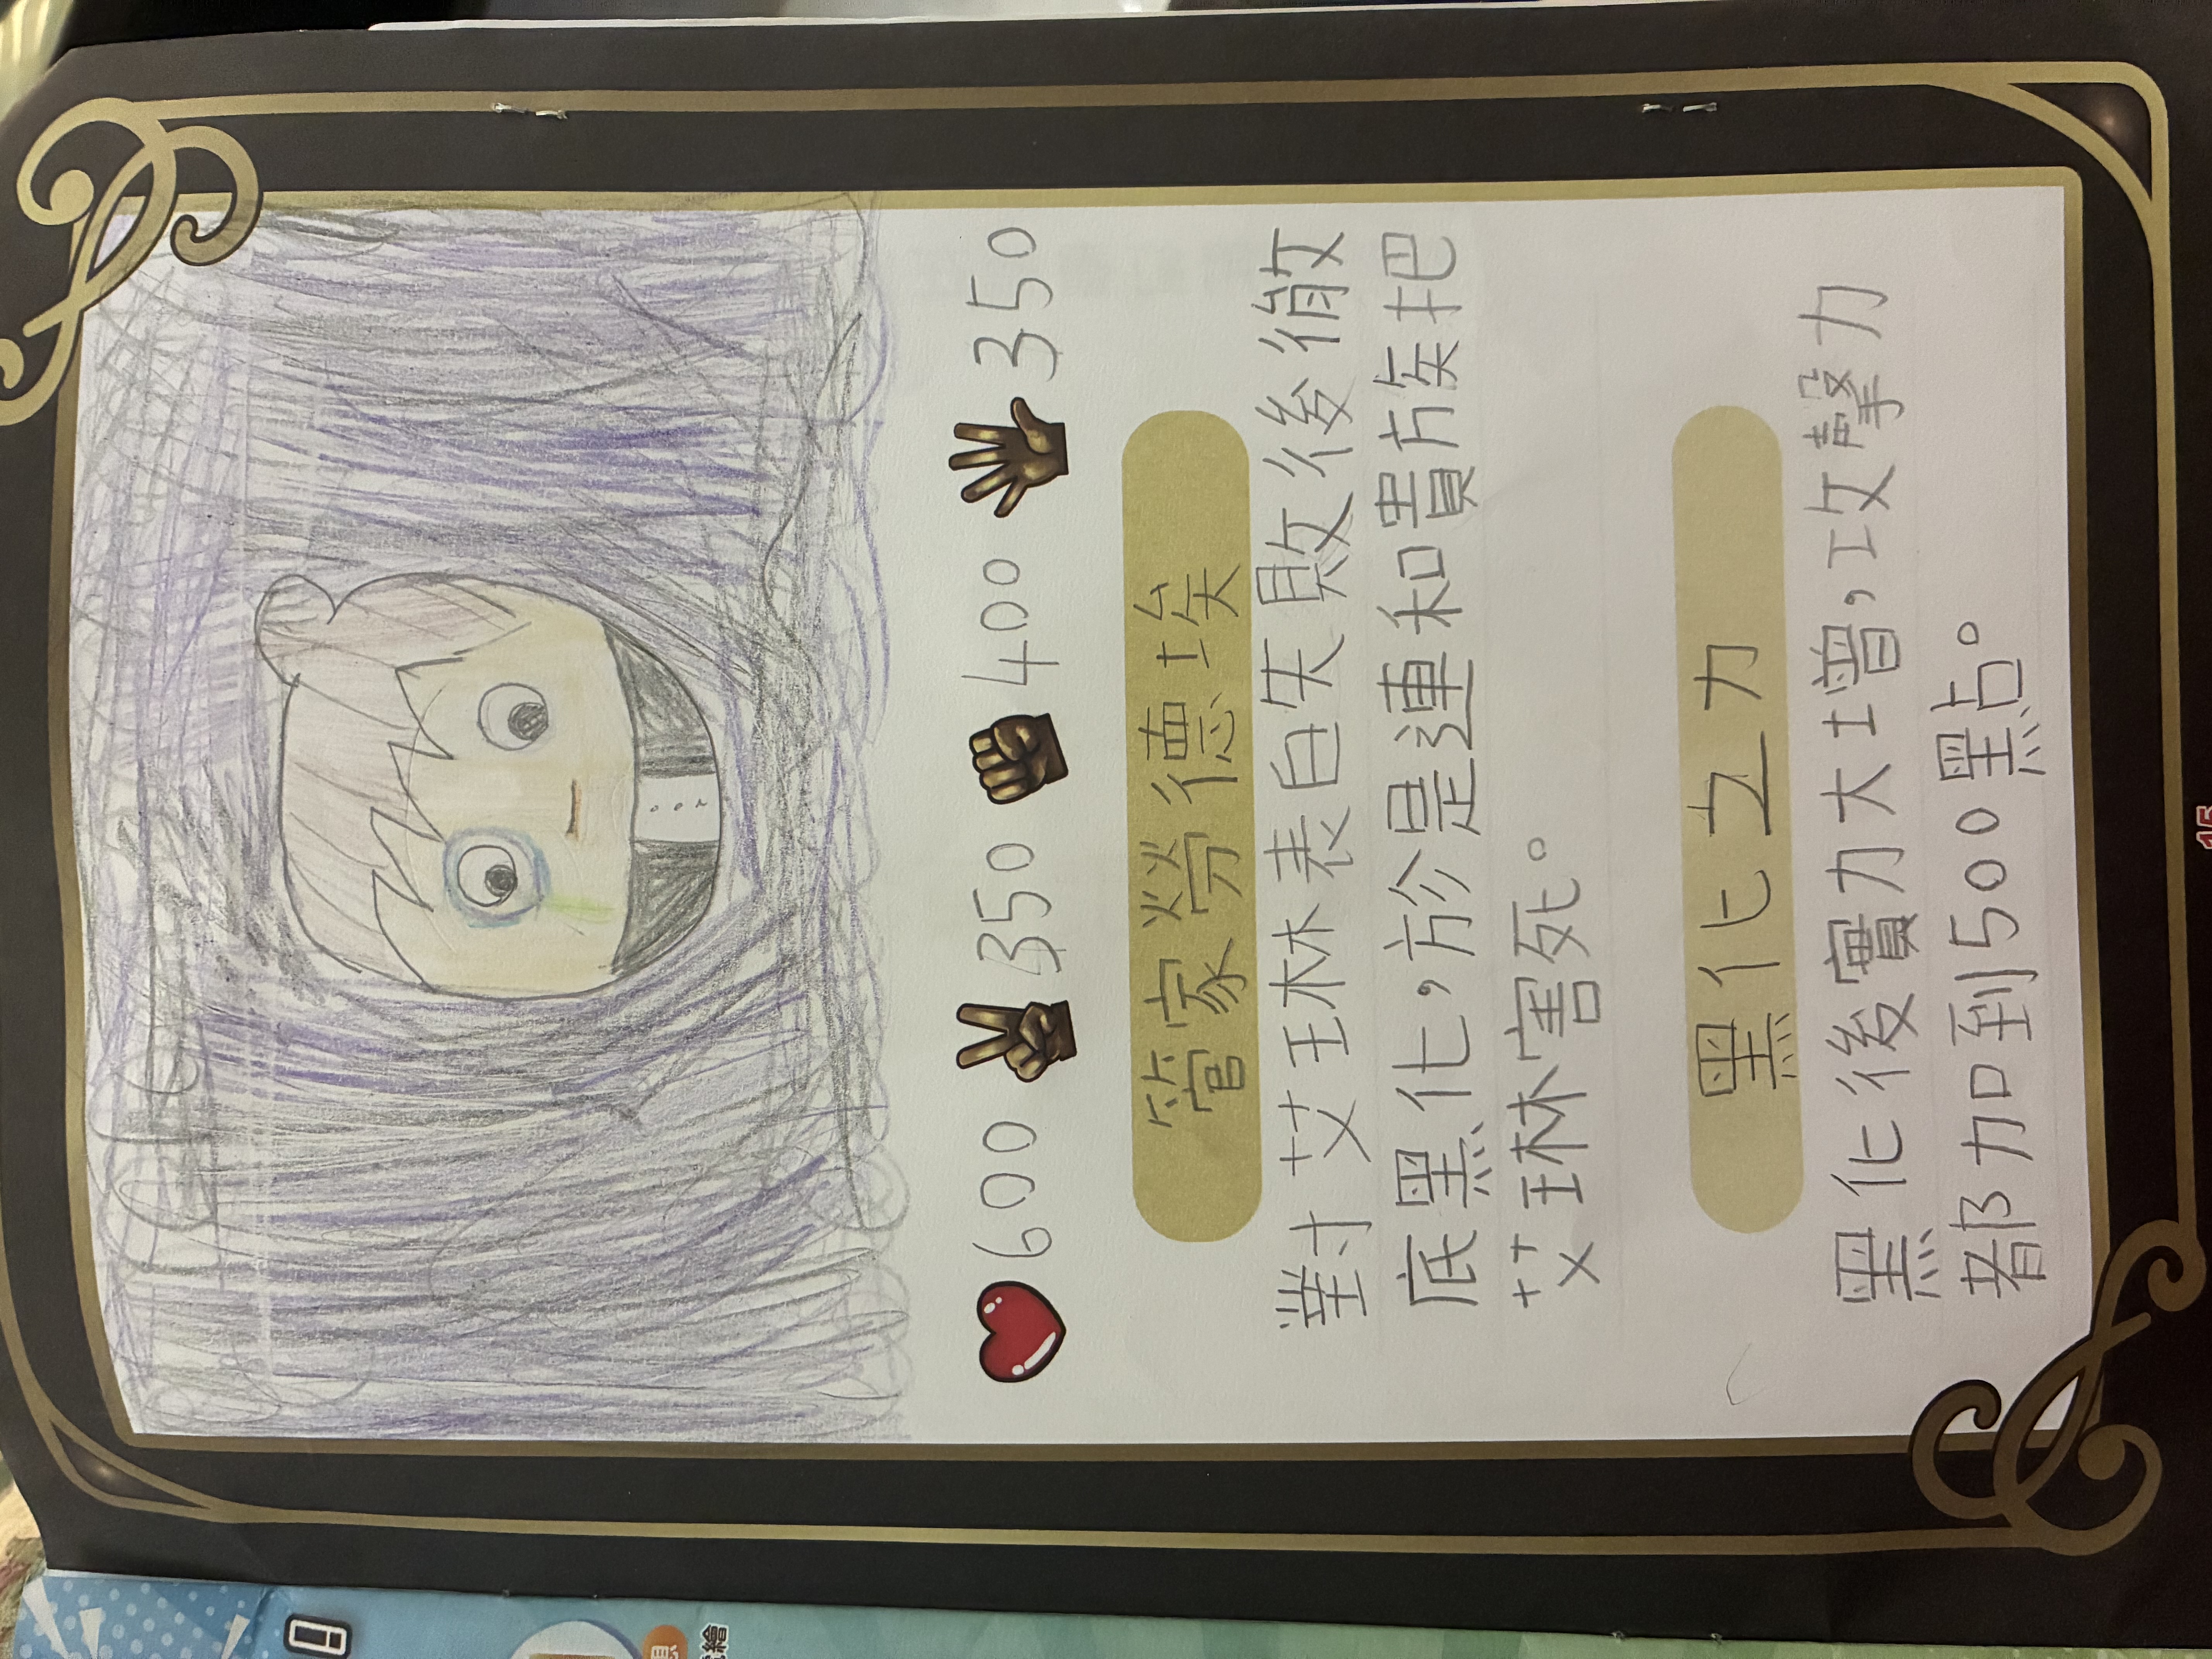 600 350 400 350
管家勞德埃
對艾琳表自失敗後徹
底黑化,於是連和貴族把
艾琳害死。
黑化之力
黑化後實力大增,攻擊力
都加到500點。
15